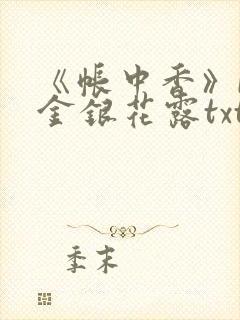 《帐中香》
金银花露txt
季末